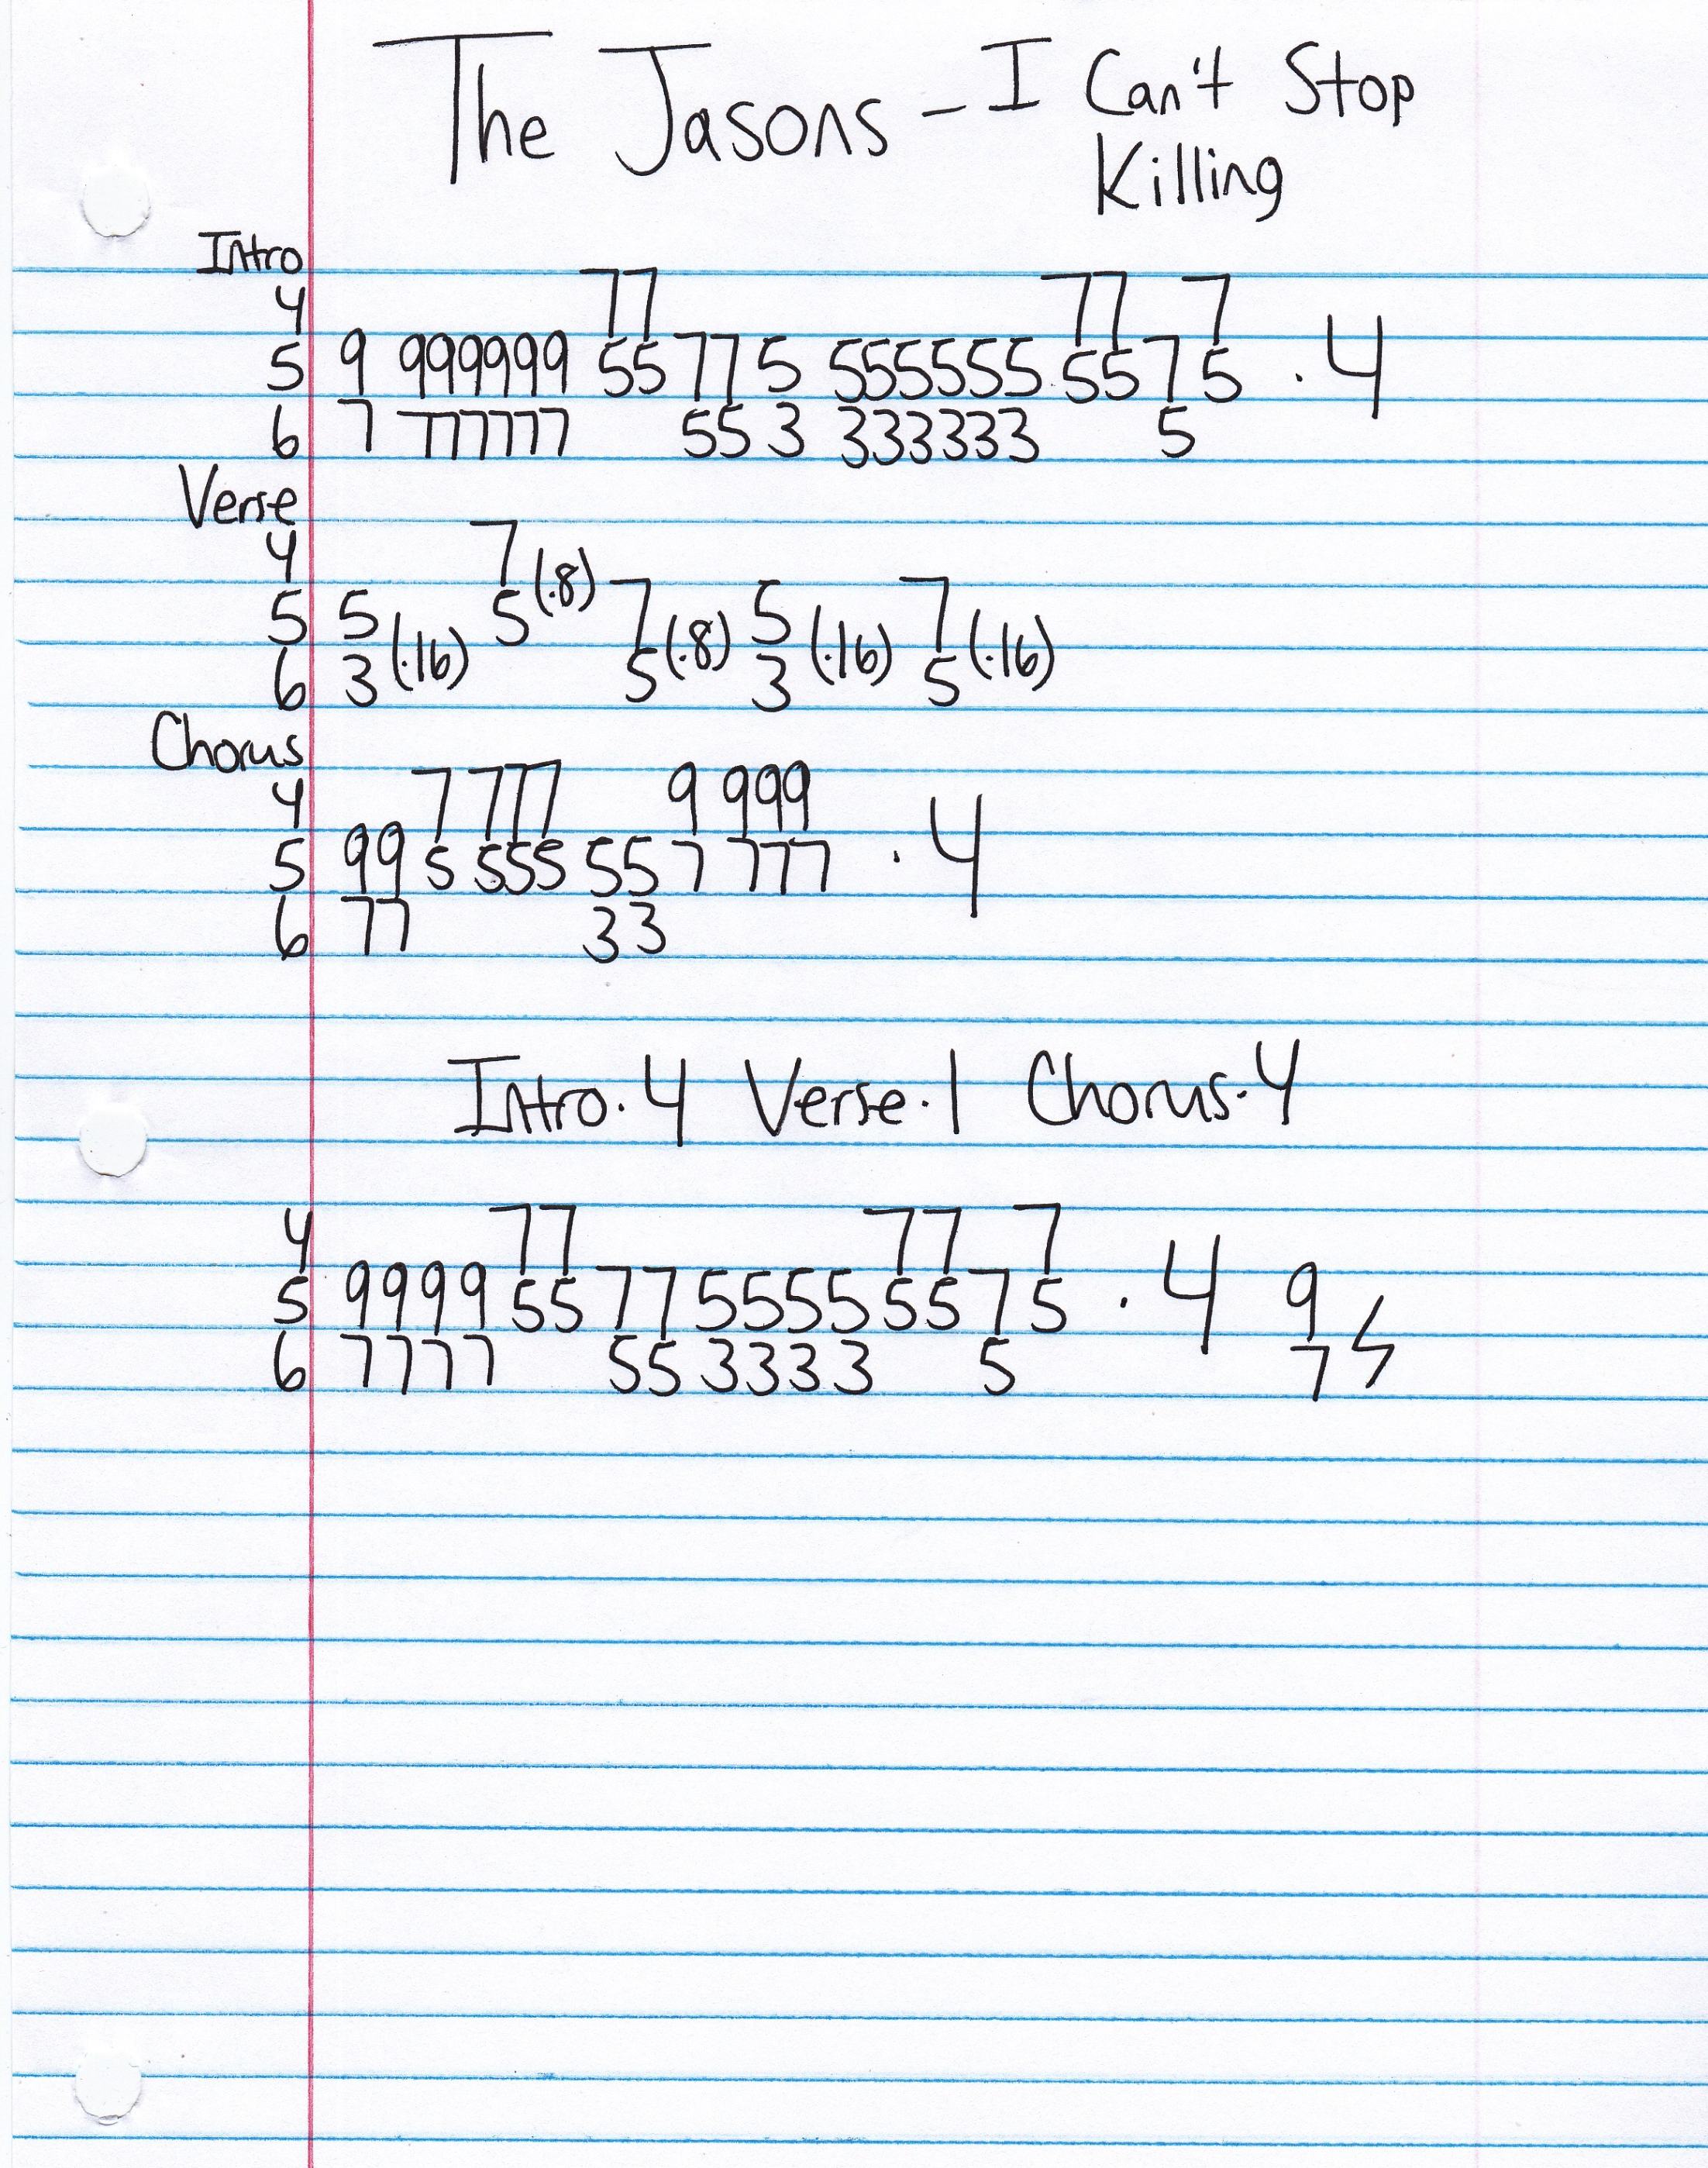 The Jasons - I Can't Stop
Killing
Intro
4 77 77 7
5 9 999999 55 77 5 555555 55 7 5 . 4
6 7 777777 55 3 333333 5
Verse
4 7
5 5 (.16) 5 (.8) 7 (.8) 5 (.16) 7 (.16)
6 3 5 3 5
Chorus
4 7 777 9 999
5 99 5 555 55 7 777 . 4
6 77 33
Intro.4 Verse.1 Chorus.4
4 77 77 7
5 9999 55 77 5555 55 7 5 . 4 9
6 7777 55 3333 5 7